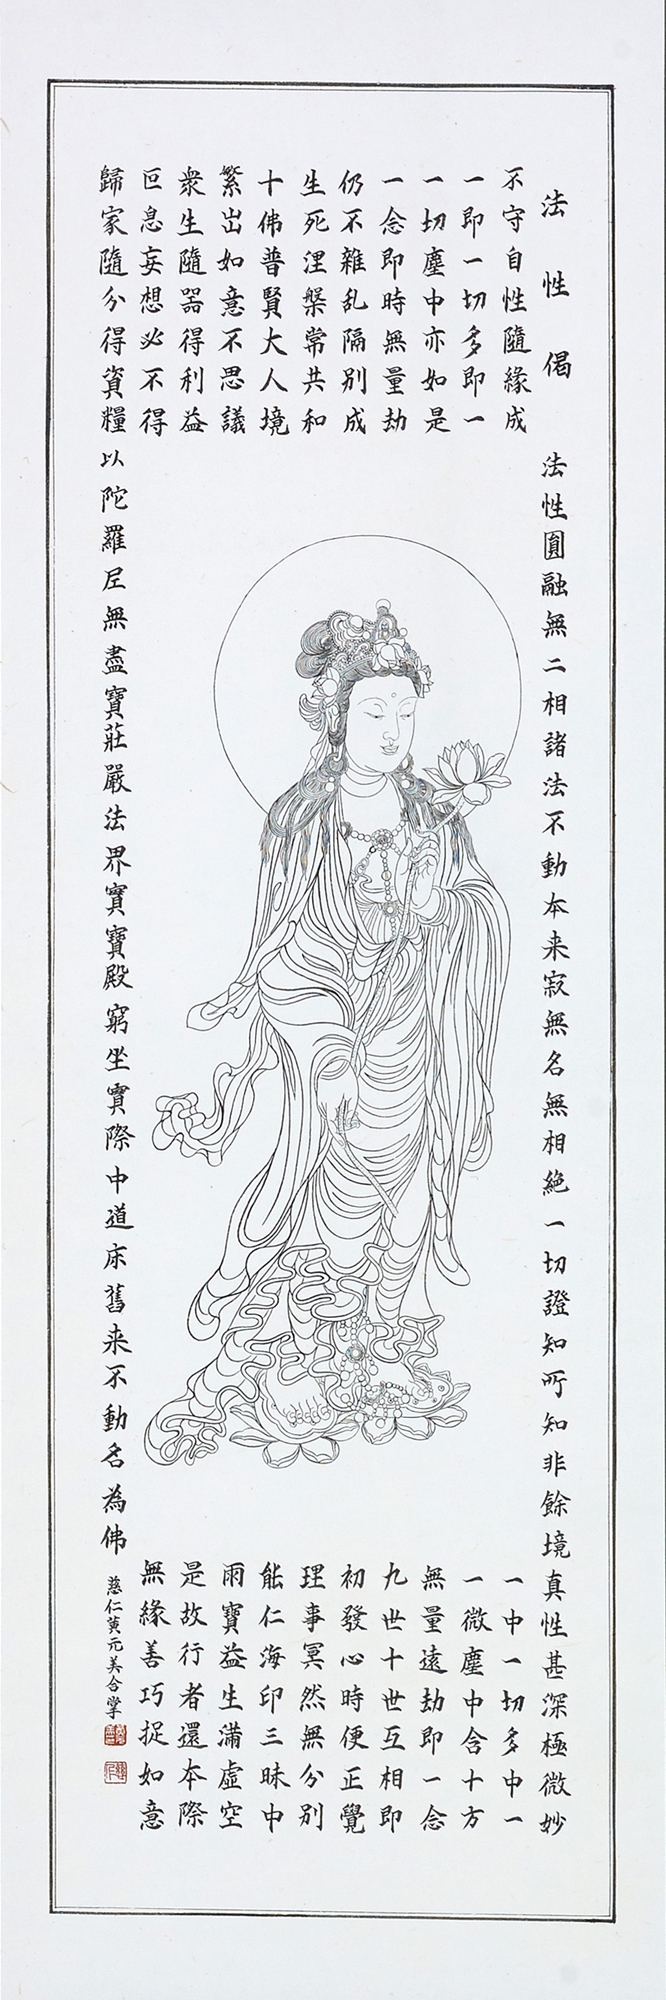 法性偈
法性圓融無二相諸法不動本来寂無名無相絶一切證知所知非餘境真性甚深極微妙
不守自性隨緣成
一中一切多中一
一即一切多即一
一微塵中含十方
一切塵中亦如是
無量遠劫即一念
一念即時無量劫
九世十世互相即
仍不雜乱隔別成
初發心時便正覺
生死涅槃常共和
理事冥然無分別
十佛普賢大人境
能仁海印三昧中
繁出如意不思議
雨寶益生滿虛空
衆生隨器得利益
是故行者還本際
叵息妄想必不得
無緣善巧捉如意
歸家隨分得資糧以陀羅尼無盡寶莊嚴法界實寶殿窮坐實際中道床舊来不動名為佛
慈仁黄元美合掌